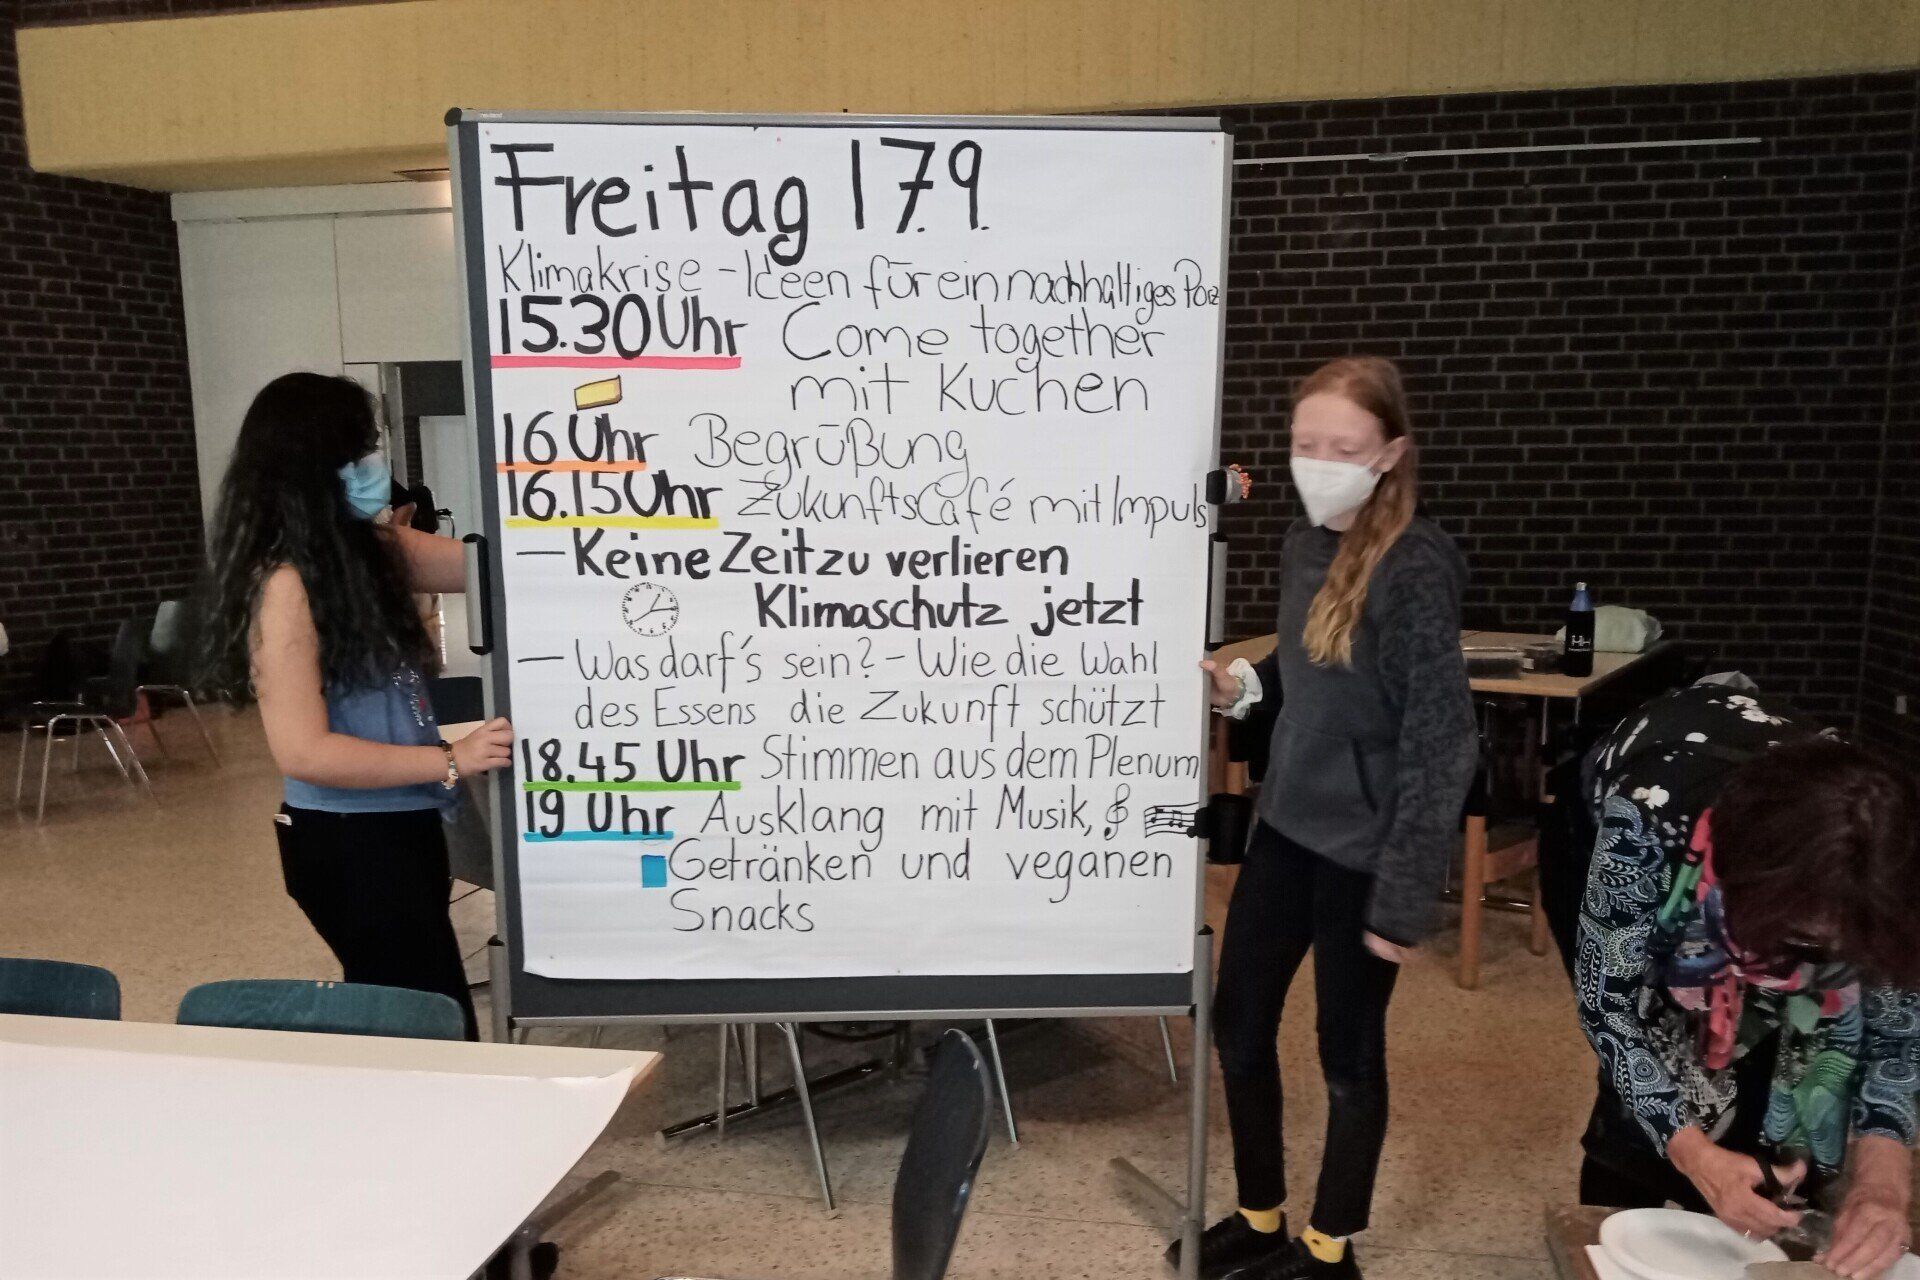 Freitag 17.9.
Klimakrise - Ideen für ein nachhaltiges Porz
15.30 Uhr Come together
mit Kuchen
16 Uhr Begrüßung
16.15 Uhr ZukunftsCafé mit Impuls
— Keine Zeit zu verlieren
Klimaschutz jetzt
— Was darf's sein? - Wie die Wahl
des Essens die Zukunft schützt
18.45 Uhr Stimmen aus dem Plenum
19 Uhr Ausklang mit Musik,
Getränken und veganen
Snacks